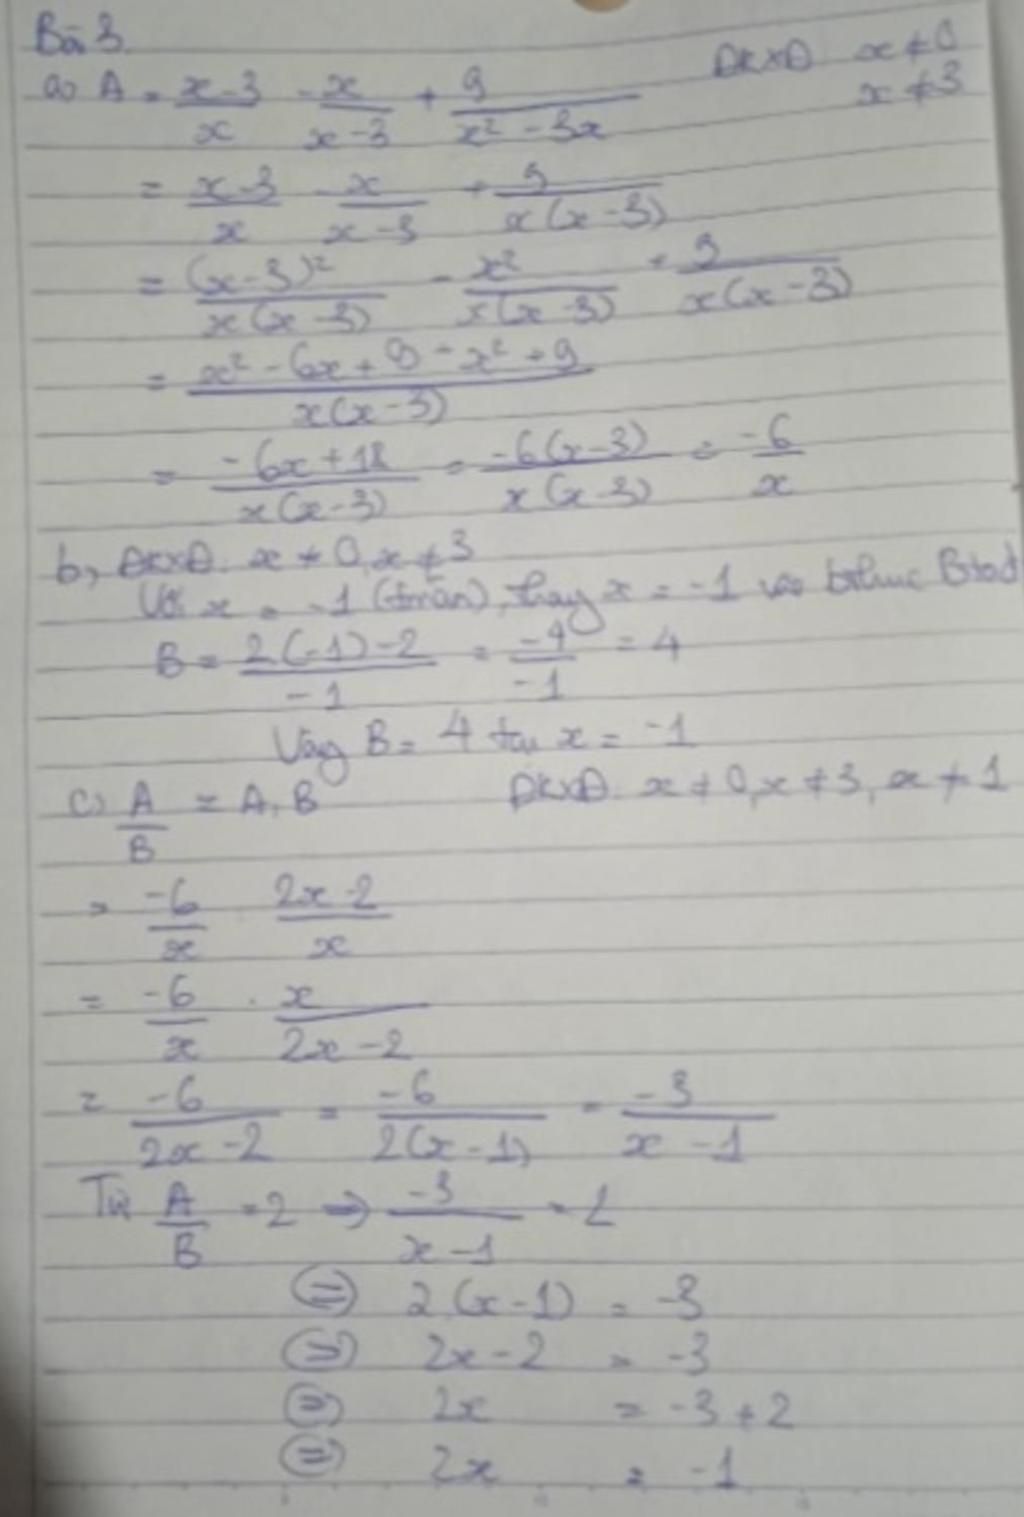 Bài 3
a) A = \frac{x-3}{x} - \frac{x}{x-3} + \frac{9}{x² - 3x} ĐKXĐ x ≠ 0
x ≠ 3
= \frac{x-3}{x} - \frac{x}{x-3} + \frac{9}{x(x-3)}
= \frac{(x-3)²}{x(x-3)} - \frac{x²}{x(x-3)} + \frac{9}{x(x-3)}
= \frac{x² - 6x + 9 - x² + 9}{x(x-3)}
= \frac{-6x+18}{x(x-3)} = \frac{-6(x-3)}{x(x-3)} = \frac{-6}{x}
b, ĐKXĐ. x ≠ 0, x ≠ 3
Với x = -1 (tmãn), thay x = -1 vào bthức B
B = \frac{2(-1)-2}{-1} = \frac{-4}{-1} = 4
Vậy B = 4 tại x = -1
c) \frac{A}{B} = A : B ĐKXĐ. x ≠ 0, x ≠ 3, x ≠ 1
= \frac{-6}{x} : \frac{2x-2}{x}
= \frac{-6}{x} . \frac{x}{2x-2}
= \frac{-6}{2x-2} = \frac{-6}{2(x-1)} = \frac{-3}{x-1}
Từ \frac{A}{B} = 2 ⇒ \frac{-3}{x-1} = 2
⇔ 2(x-1) = -3
⇔ 2x - 2 = -3
⇔ 2x = -3 + 2
⇔ 2x = -1